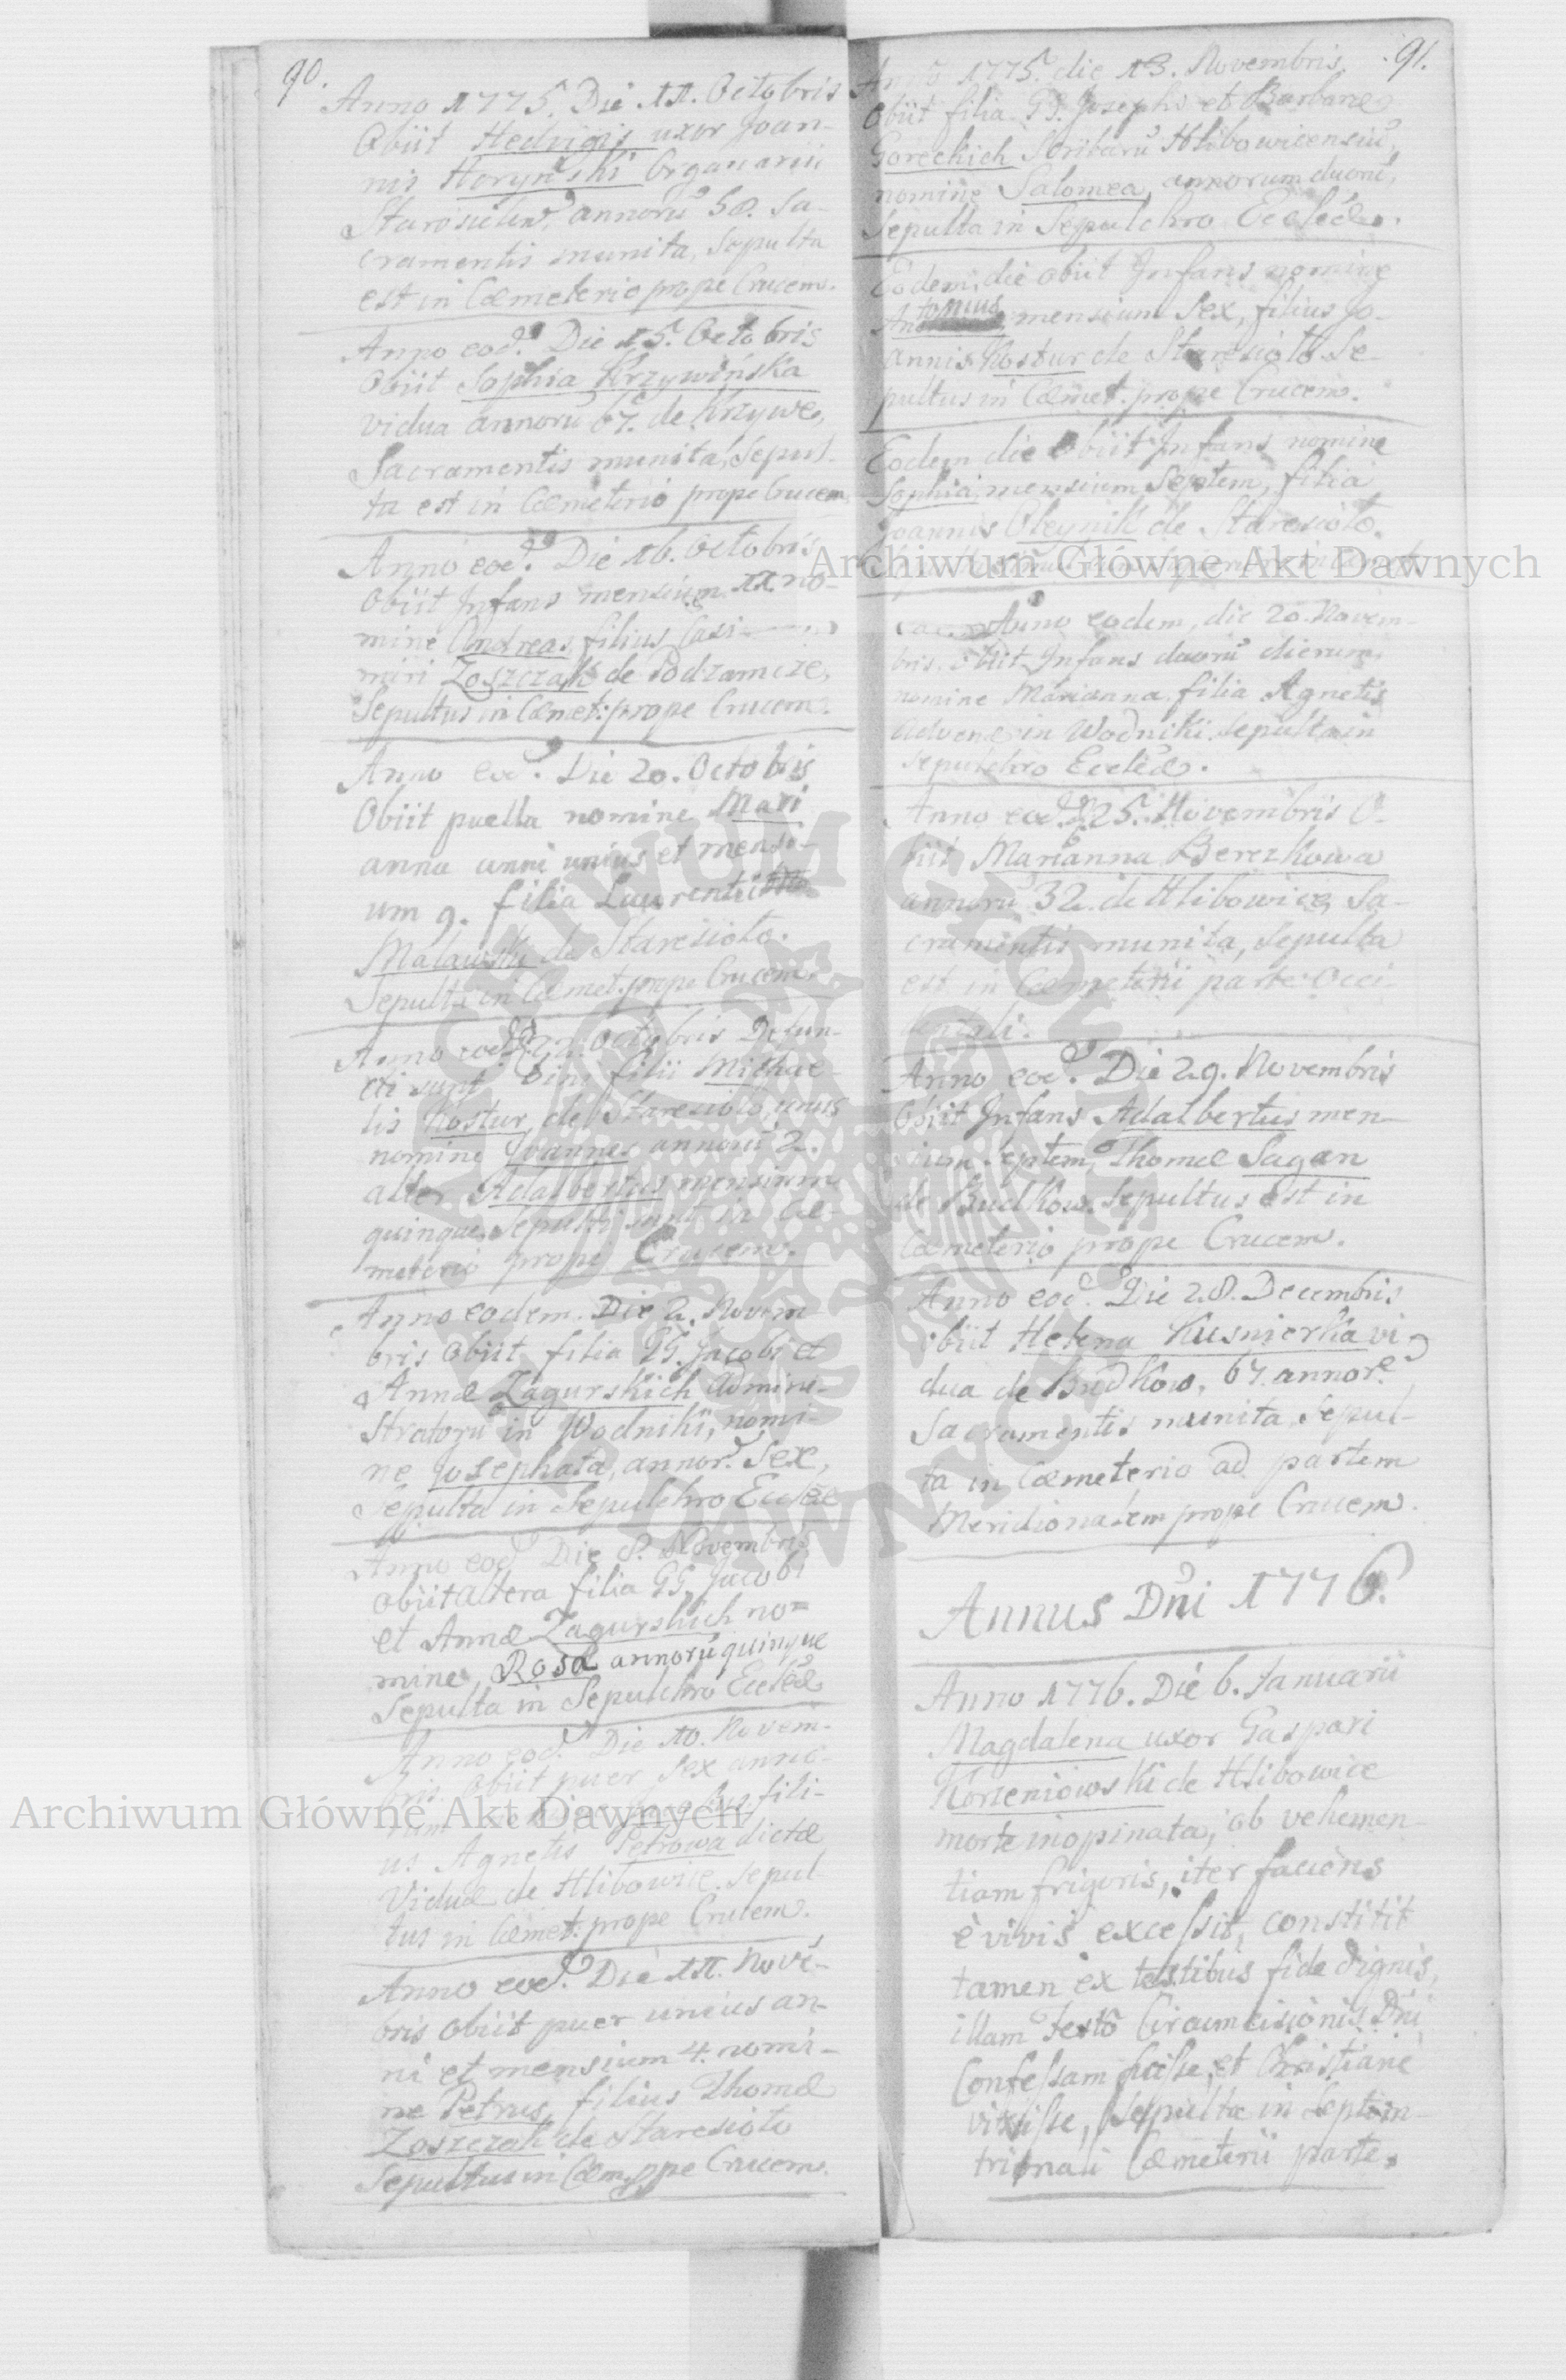 90.
Anno 1775. Die 11. Octobris
Obiit Hedvigis uxor Joan-
nis Horyński Organarii
Starosielen. annorũ 58. Sa-
cramentis munita, Sepulta
est in Cæmeterio prope Crucem.
Anno eod. Die 15. Octobris
Obiit Sophia Krzywińska
vidua annorũ 67. de Krzywe,
Sacramentis munita, Sepul-
ta est in Cæmeterio prope Crucem
Anno eod. Die 16. Octobris
Obiit Infans mensium 11. no-
mine Andreas, filius Casi-
miri Zoszczak de Podzamcze,
Sepultus in Cæmet: prope Crucem.
Anno eod. Die 20. Octobris
Obiit puella nomine Mari
anna anni unius et mensi-
um 9. filia Laurentii
Malawski de Staresioło.
Sepulta in Cæmet. prope Crucem.
Anno eod. Octobris Defun-
cti sunt bini filii Michae-
lis Kostur de Staresioło, unus
nomine Joannes annorũ 2.
alter Adalbertus mensium
quinque, Sepulti sunt in Cæ-
meterio prope Crucem.
Anno eodem. Die 2. Novem
bris Obiit filia GG. Jacobi et
Annæ Zagurskich Admini-
stratorũ in Wodniki, nomi-
ne Josephata, annor. Sex,
Sepulta in Sepulchro Eccłæ
Anno eod. Die 8. Novembris
Obiit altera filia GG. Jacobi
et Annæ Zagurskich no=
mine Rosa annorũ quinque
Sepulta in Sepulchro Eccłæ
Anno eod. Die 10. Novem-
bris Obiit puer Sex anno-
rum nomine Jacobus, fili-
us Agnetis Petrowa dictæ
Viduæ de Hlibowice. Sepul-
tus in Cæmet: prope Crucem.
Anno eod. Die 11. Novẽ-
bris Obiit puer unius an-
ni et mensium 4. nomi-
ne Petrus, filius Thomæ
Zoszczak de Staresioło
Sepultus in Cæm. ppe Crucem.
91.
Anno 1775. die 13. Novembris
Obiit filia GG. Josephi et Barbaræ
Goreckich Scribarũ Hlibowicensiũ,
nomine Salomea, annorum duorũ,
Sepulta in Sepulchro Eccłæ.
Eodem die obiit Infans nomine
Antonius mensium Sex, filius Jo-
annis Kostur de Staresioło Se-
pultus in Cæmet. prope Crucem.
Eodem die obiit Infans nomine
Sophia, mensium Septem, filia
Joannis Oleynik de Staresioło.
Anno eodem, die 20. Novem-
bris. obiit Infans duorũ dierum,
nomine Marianna filia Agnetis
Advenæ in Wodniki. Sepulta in
Sepulchro Eccłæ.
Anno eod. 25. Novembris O-
biit Marianna Berezkowa
annorũ 32. de Hlibowice, Sa-
cramentis munita, Sepulta
est in Cæmeterii parte Occi-
dentali.
Anno eod. Die 29. Novembris
Obiit Infans Adalbertus men-
sium Septem, Thomæ Sagan
de Budkow. Sepultus est in
Cæmeterio prope Crucem.
Anno eod. Die 28. Decembris
obiit Helena Kusnierka vi
dua de Budkow, 67. annor.
Sacramentis munita, Sepul-
ta in Cæmeterio ad partem
Meridionalem prope Crucem.
Annus Dñi 1776.
Anno 1776. Die 6. Januarii
Magdalena uxor Gaspari
Korzeniowski de Hlibowice
morte inopinata, ob vehemen-
tiam frigoris, iter faciens
è vivis excessit, constitit
tamen ex testibus fide dignis,
illam festo Circumcisionis Dñi
Confessam fuisse, et Christiane
vixisse, Sepulta in Septen-
trionali Cæmeterii parte.
Archiwum Główne Akt Dawnych
Archiwum Główne Akt Dawnych
ARCHIWUM GŁÓWNE
AKT DAWNYCH